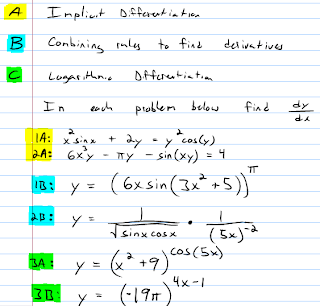 A Implicit Differentiation
B Combining rules to find derivatives
C Logarithmic Differentiation
In each problem below find dy/dx
1A: x² sinx + 2y = y² cos(y)
2A: 6x³y - πy - sin(xy) = 4
1B: y = (6x sin(3x² + 5))^π
2B: y = 1/√(sinx cosx) · 1/(5x)⁻²
3A: y = (x² + 9)^cos(5x)
3B: y = (-19π)^4x-1